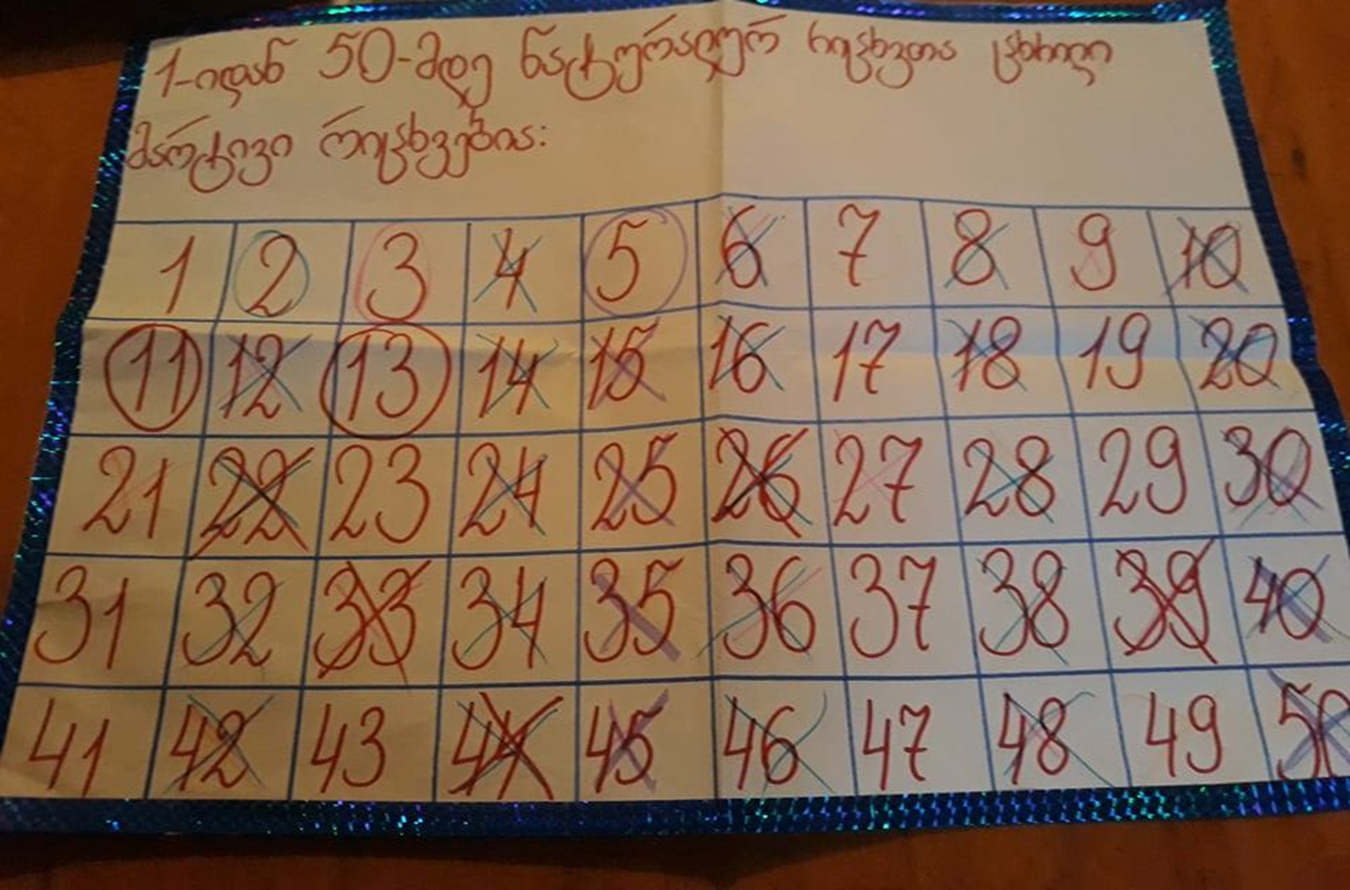 1-იდან 50-მდე ნატურალურ რიცხვთა ცხრილი
მარტივი რიცხვებია:
1 2 3 4 5 6 7 8 9 10
11 12 13 14 15 16 17 18 19 20
21 22 23 24 25 26 27 28 29 30
31 32 33 34 35 36 37 38 39 40
41 42 43 44 45 46 47 48 49 50